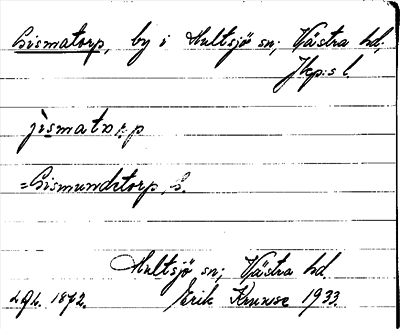 Gismatorp, by i Hultsjö sn; Västra hd,
Jkp:s l.
jismatɔrp
=Gismundstorp, G.
Hultsjö sn; Västra hd.
1872. Erik Kruuse 1933.